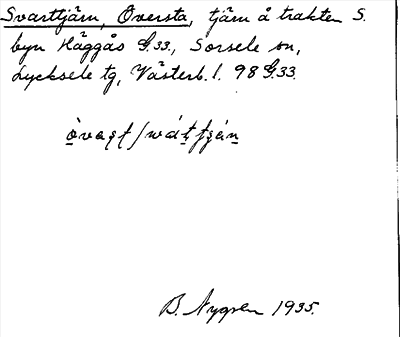 Svarttjärn, Översta, tjärn å trakten S.
byn Häggås G.33., Sorsele sn,
Lycksele tg, Västerb. l. 98 G.33.
B. Nygren 1935.